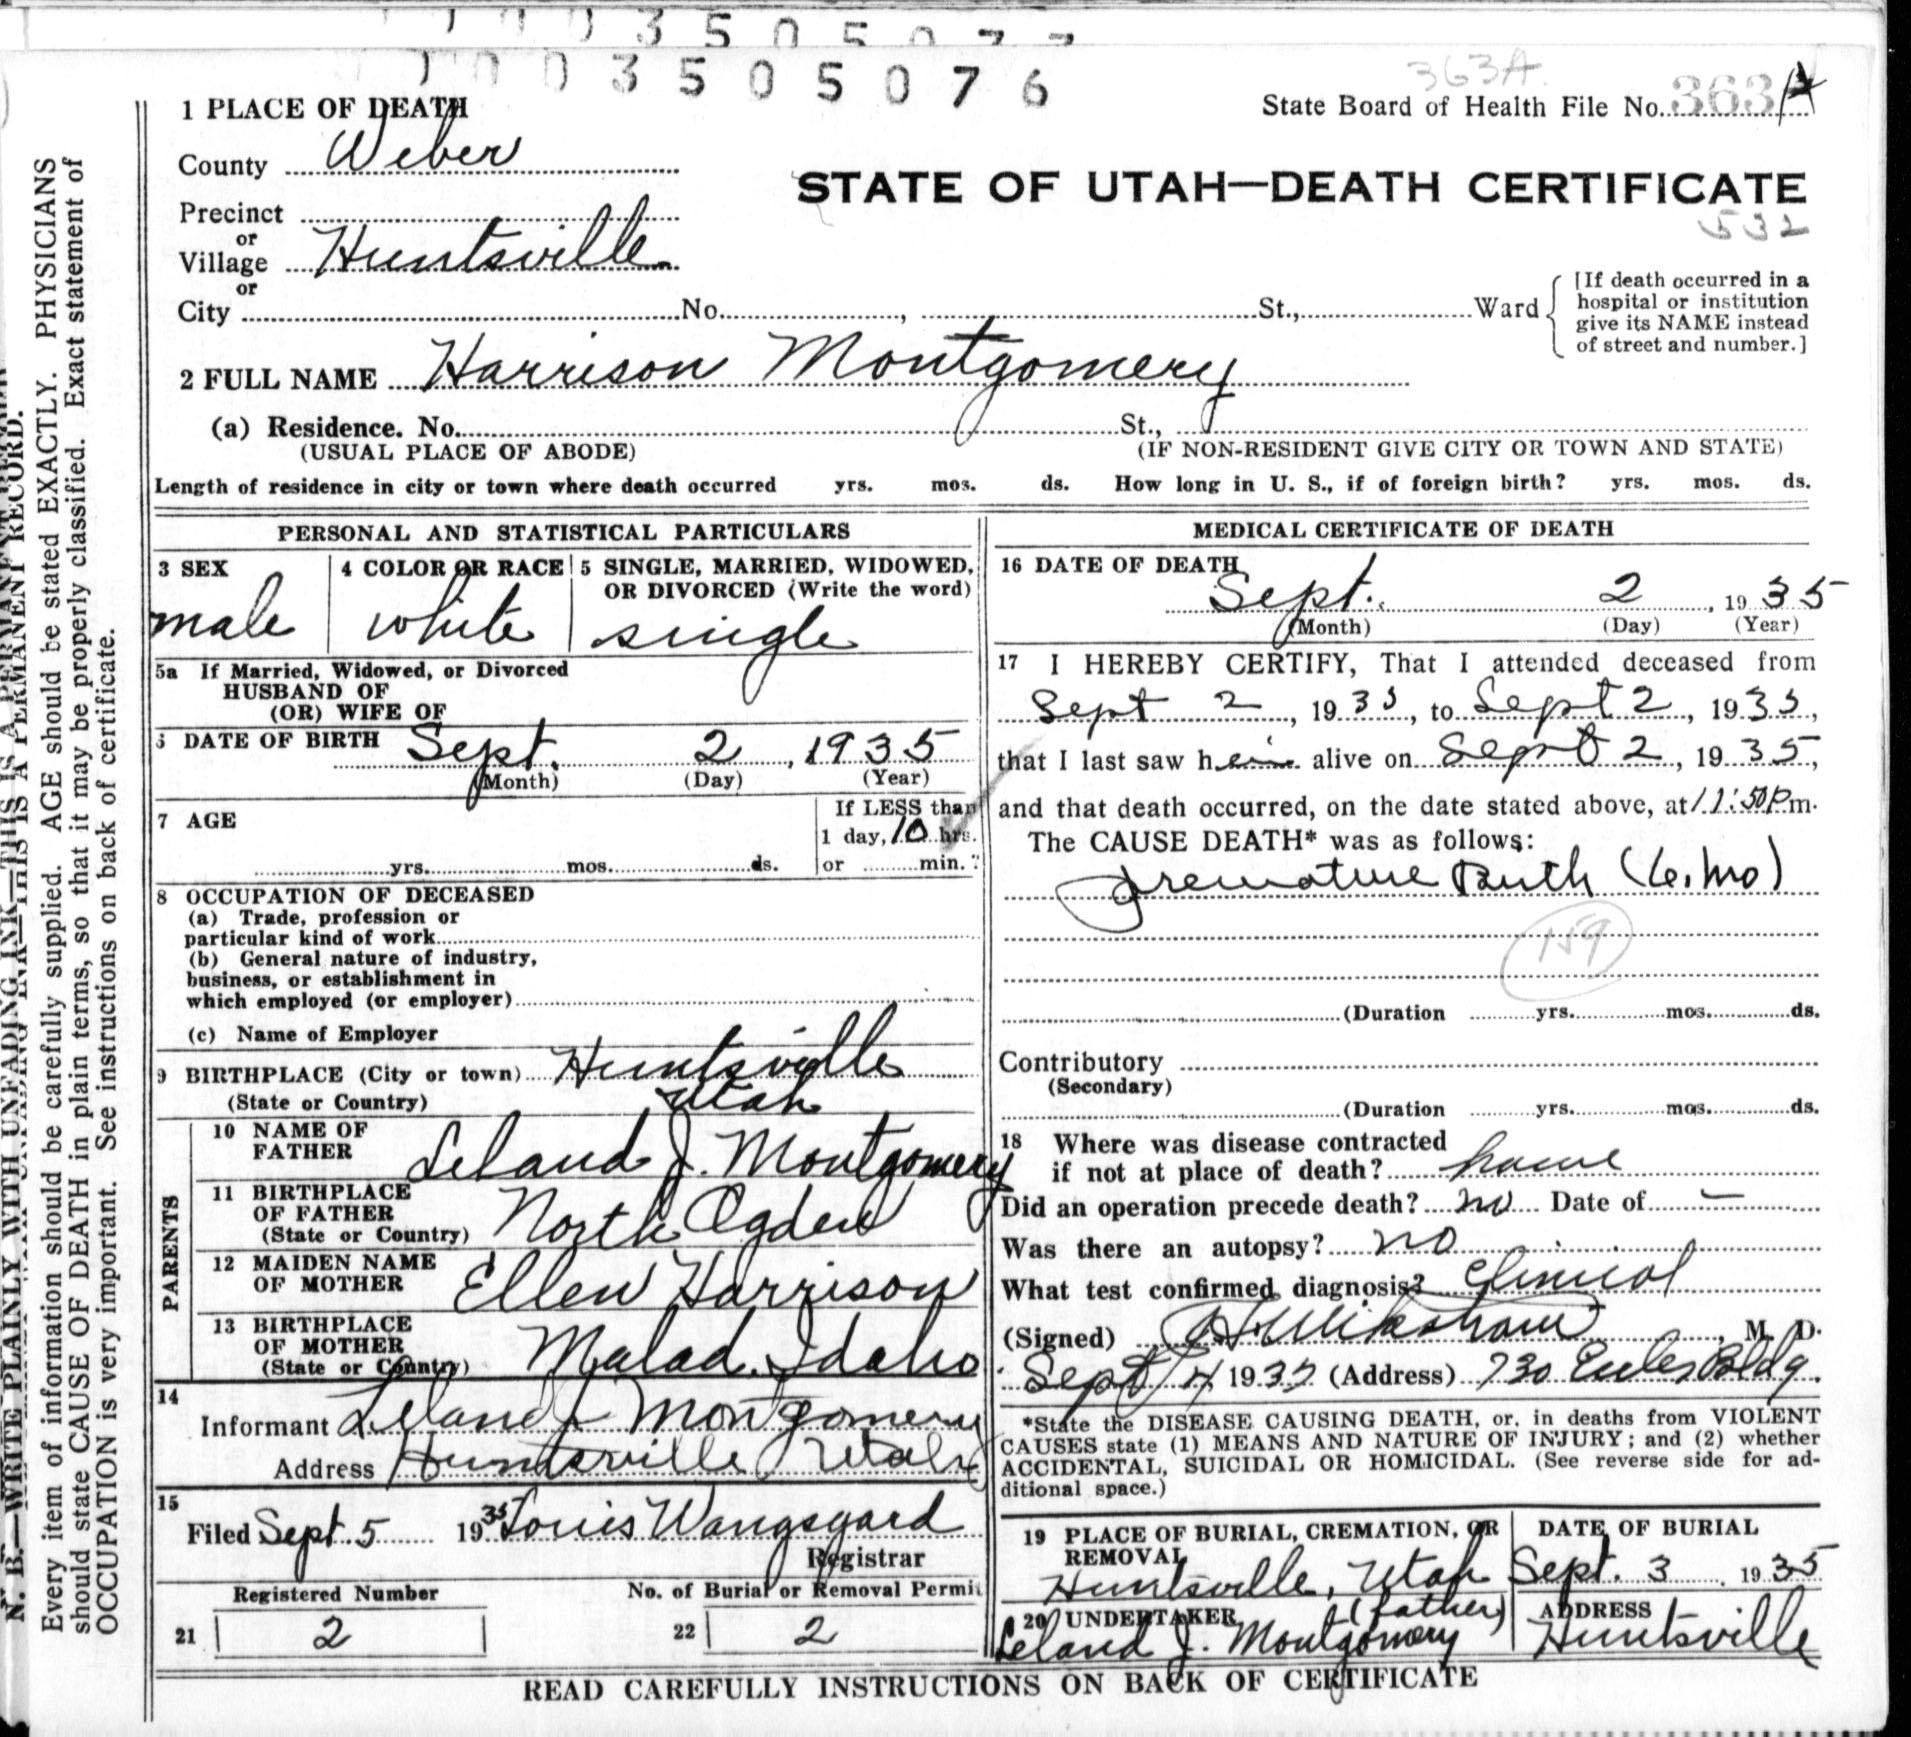 1003505076
363A
State Board of Health File No. 363
STATE OF UTAH—DEATH CERTIFICATE
532
1 PLACE OF DEATH
County Weber
Precinct
or
Village Huntsville
or
City No. , St., Ward
[If death occurred in a
hospital or institution
give its NAME instead
of street and number.]
2 FULL NAME Harrison Montgomery
(a) Residence. No. St.,
(USUAL PLACE OF ABODE) (IF NON-RESIDENT GIVE CITY OR TOWN AND STATE)
Length of residence in city or town where death occurred yrs. mos. ds. How long in U. S., if of foreign birth? yrs. mos. ds.
PERSONAL AND STATISTICAL PARTICULARS
3 SEX
male
4 COLOR OR RACE
white
5 SINGLE, MARRIED, WIDOWED,
OR DIVORCED (Write the word)
single
5a If Married, Widowed, or Divorced
HUSBAND OF
(OR) WIFE OF
DATE OF BIRTH Sept. 2, 1935
(Month) (Day) (Year)
7 AGE
yrs. mos. ds.
If LESS than
1 day, 10 hrs.
or min.?
8 OCCUPATION OF DECEASED
(a) Trade, profession or
particular kind of work
(b) General nature of industry,
business, or establishment in
which employed (or employer)
(c) Name of Employer
9 BIRTHPLACE (City or town) Huntsville
(State or Country) Utah
PARENTS
10 NAME OF
FATHER Leland J. Montgomery
11 BIRTHPLACE
OF FATHER
(State or Country) North Ogden
12 MAIDEN NAME
OF MOTHER Ellen Harrison
13 BIRTHPLACE
OF MOTHER
(State or Country) Malad. Idaho
14
Informant Leland J Montgomery
Address Huntsville Utah
15
Filed Sept. 5 1935 Louis Wangsgard
Registrar
Registered Number No. of Burial or Removal Permit
21 2 22 2
MEDICAL CERTIFICATE OF DEATH
16 DATE OF DEATH
Sept. 2, 1935
(Month) (Day) (Year)
17 I HEREBY CERTIFY, That I attended deceased from
Sept 2, 1935, to Sept 2, 1935,
that I last saw him alive on Sept 2, 1935,
and that death occurred, on the date stated above, at 11:50 P.m.
The CAUSE DEATH* was as follows:
Premature Birth (6. mo)
159
(Duration yrs. mos. ds.
Contributory
(Secondary)
(Duration yrs. mos. ds.
18 Where was disease contracted
if not at place of death? home
Did an operation precede death? no Date of —
Was there an autopsy? no
What test confirmed diagnosis? Clinical
(Signed) , M. D.
Sept 4 1935 (Address) 730 Eccles Bldg.
*State the DISEASE CAUSING DEATH, or, in deaths from VIOLENT
CAUSES state (1) MEANS AND NATURE OF INJURY; and (2) whether
ACCIDENTAL, SUICIDAL OR HOMICIDAL. (See reverse side for ad-
ditional space.)
19 PLACE OF BURIAL, CREMATION, OR
REMOVAL
Huntsville, Utah
DATE OF BURIAL
Sept. 3 1935
20 UNDERTAKER (father)
Leland J. Montgomery
ADDRESS
Huntsville
READ CAREFULLY INSTRUCTIONS ON BACK OF CERTIFICATE
N. B.—WRITE PLAINLY WITH UNFADING INK—THIS IS A PERMANENT RECORD.
Every item of information should be carefully supplied. AGE should be stated EXACTLY. PHYSICIANS
should state CAUSE OF DEATH in plain terms, so that it may be properly classified. Exact statement of
OCCUPATION is very important. See instructions on back of certificate.